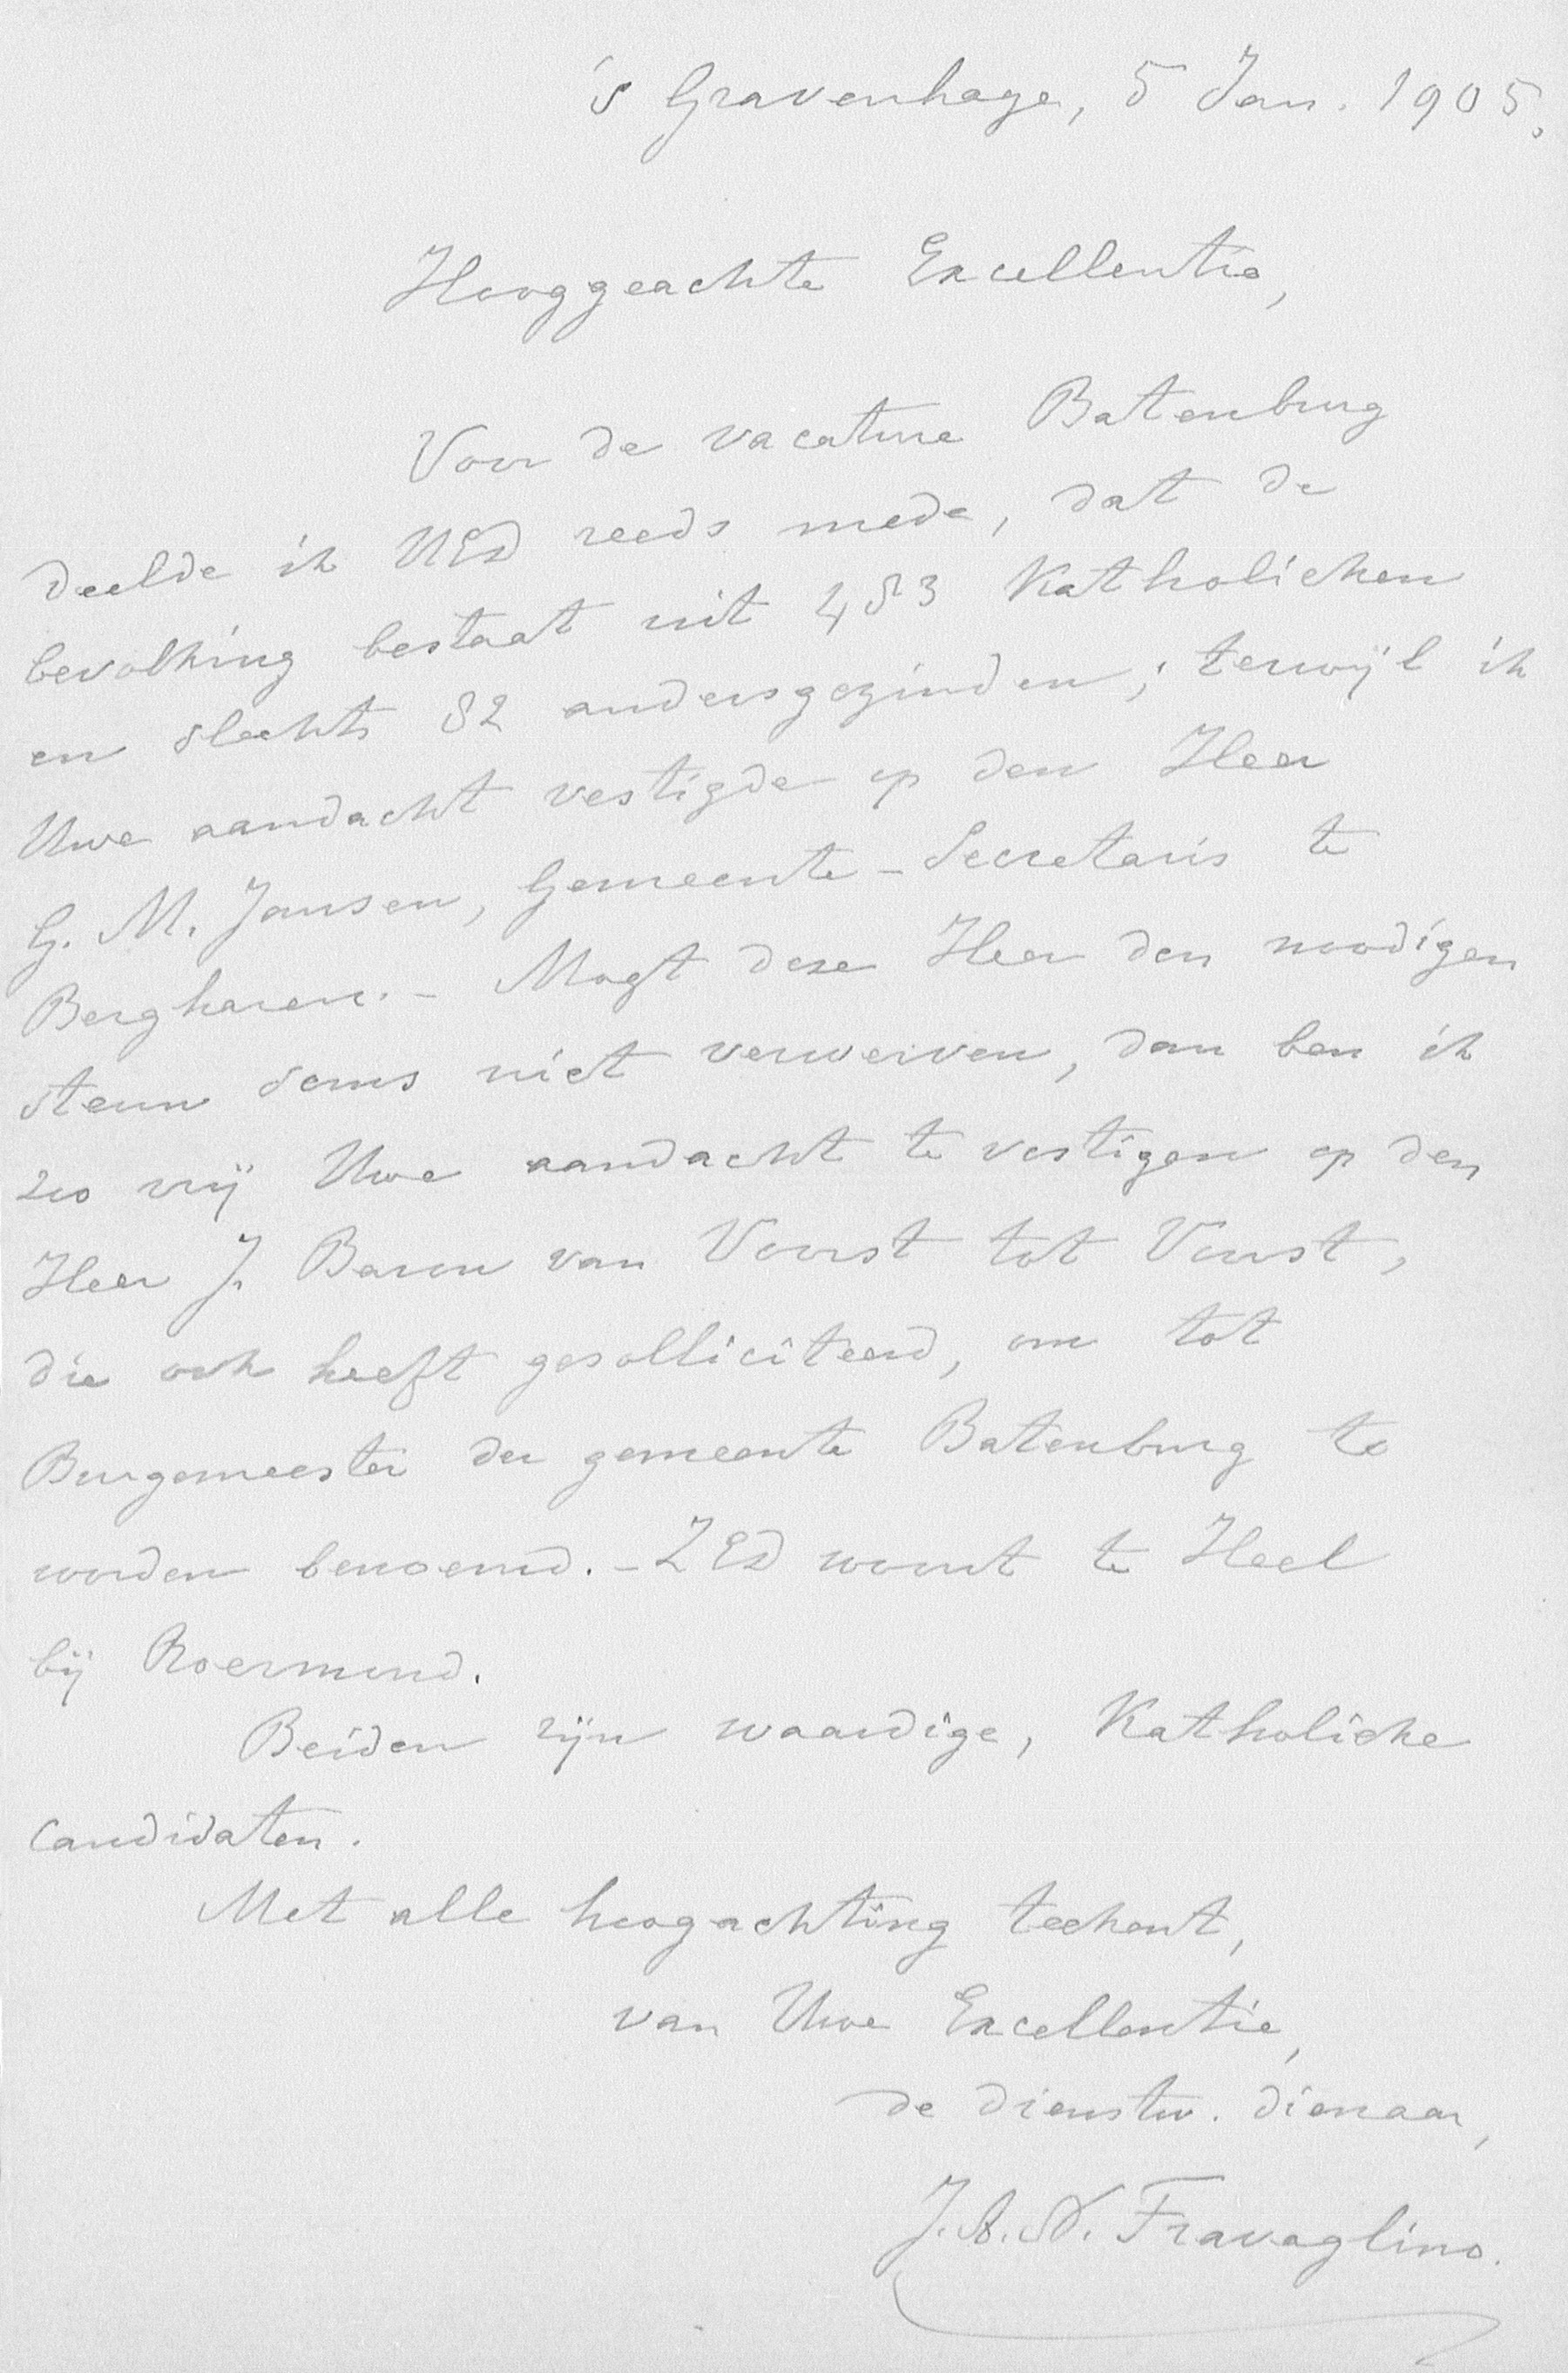 's Gravenhage, 5 Jan. 1905.
Hooggeachte Excellentie,
Voor de vacature Batenburg
deelde ik UEd reeds mede, dat de
bevolking bestaat uit 483 Katholieken
en slechts 82 andersgezinden; terwijl ik
Uwe aandacht vestigde op den Heer
G. M. Jansen, Gemeente-Secretaris te
Bergharen. - Mogt deze Heer den noodigen
steun soms niet verwerven, dan ben ik
zoo vrij Uwe aandacht te vestigen op den
Heer J. Baron van Voorst tot Voorst,
die ook heeft gesolliciteerd, om tot
Burgemeester der gemeente Batenburg te
worden benoemd. - ZEd woont te Heel
bij Roermond.
Beiden zijn waardige, Katholieke
candidaten.
Met alle hoogachting teekent,
van Uwe Excellentie,
de dienstw. dienaar,
J. A. N. Travaglino.